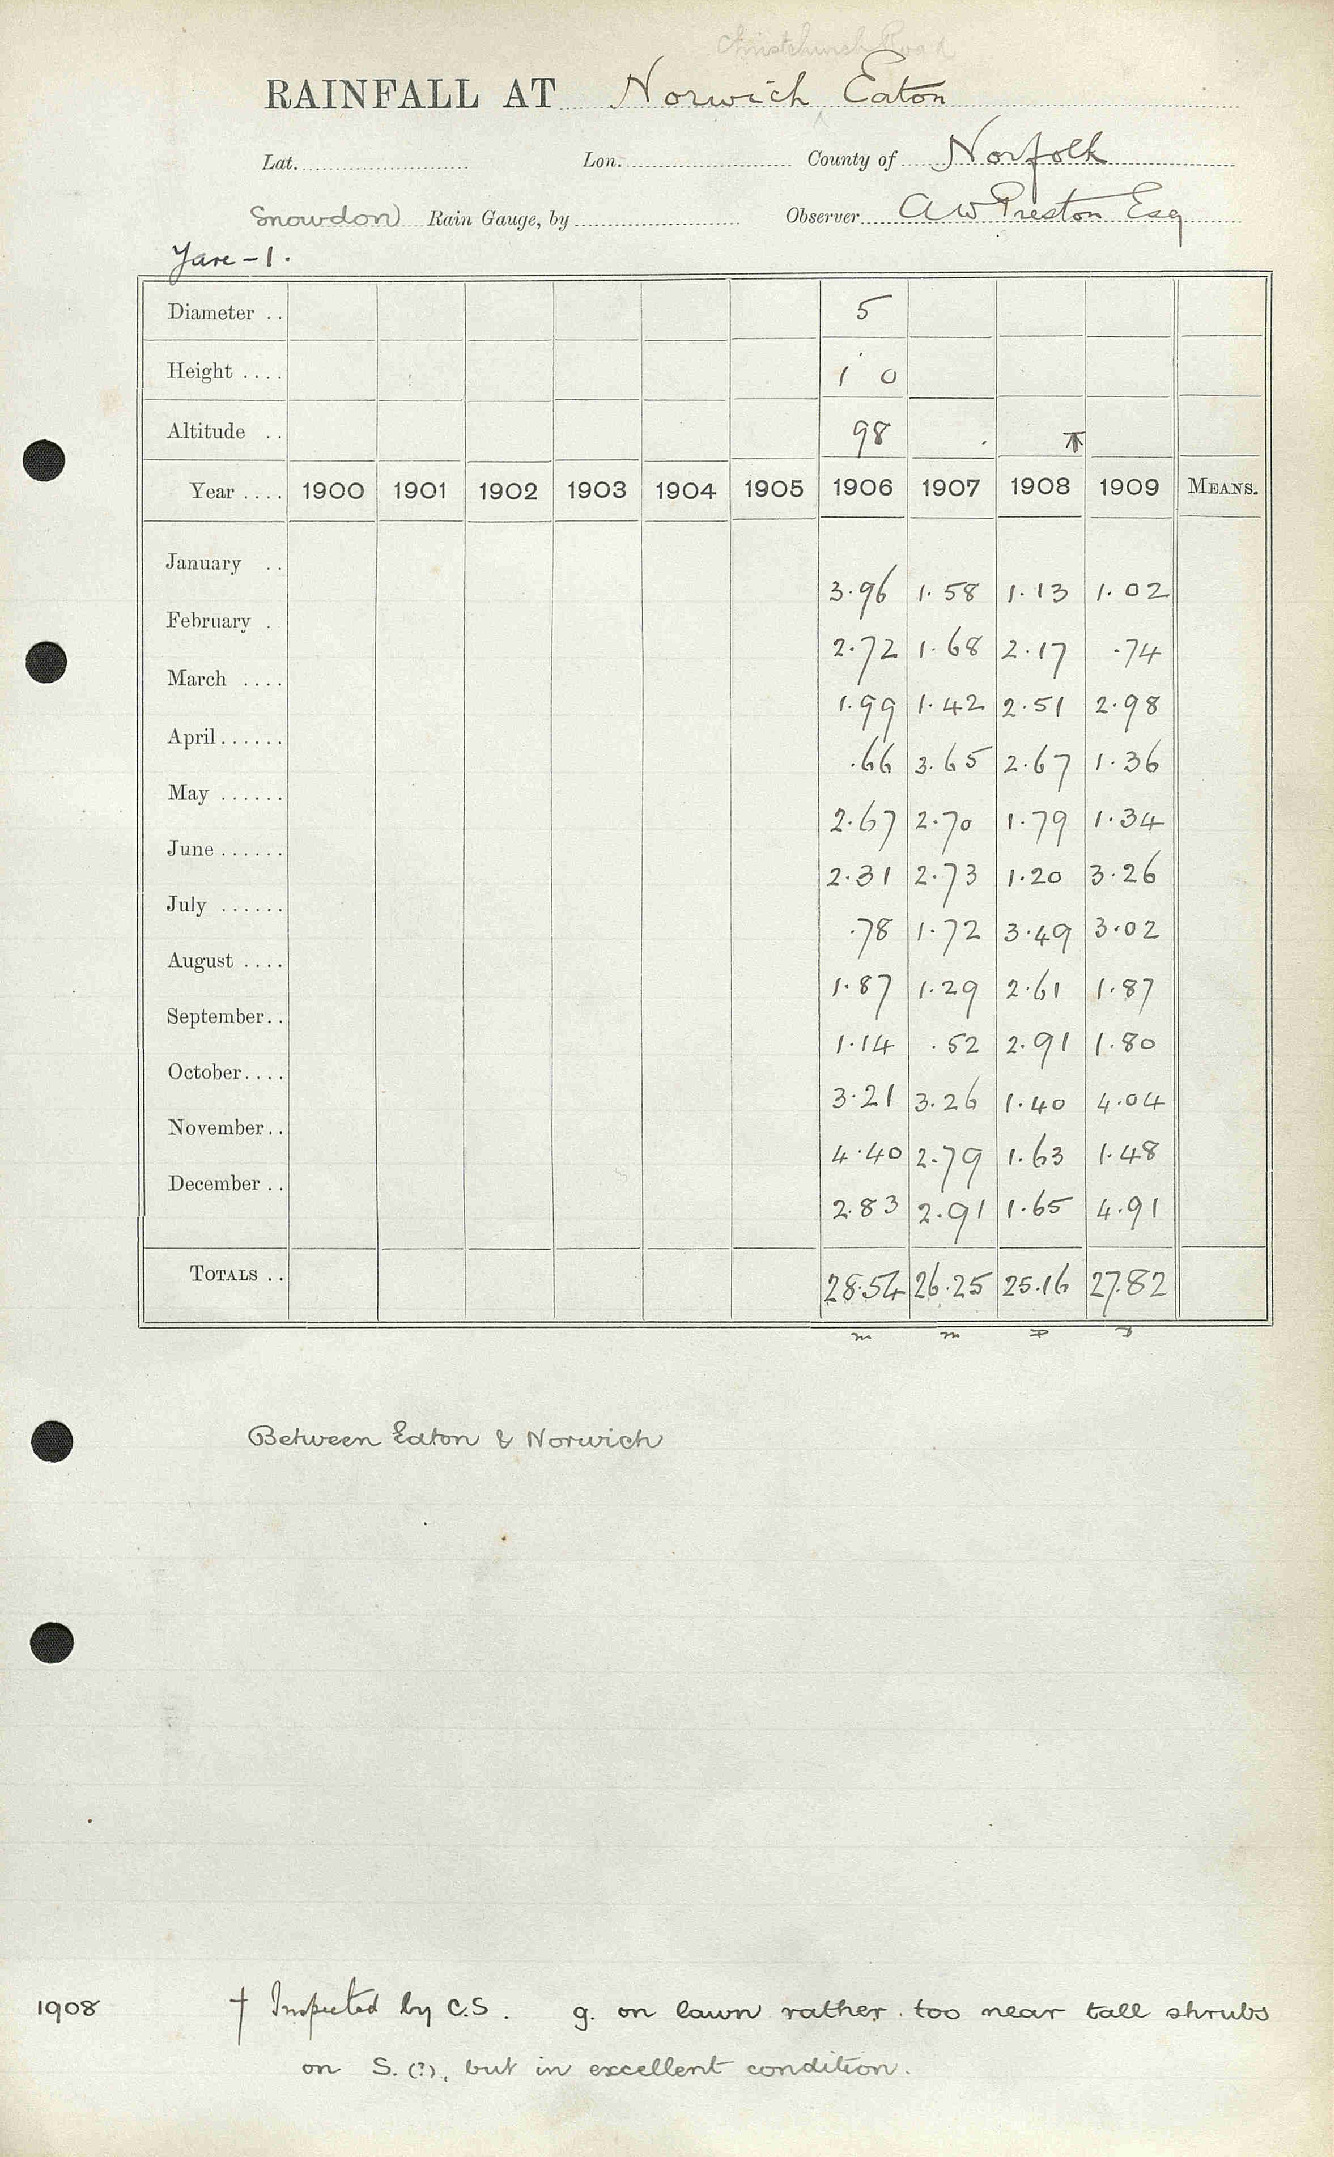 Christchurch Road
RAINFALL AT Norwich Eaton
Lat. Lon. County of Norfolk
Snowdon Rain Gauge, by Observer A W Preston Esq
Yare - 1.
Diameter .. 5
Height .... 1 0
Altitude .. 98
Year .... 1900 1901 1902 1903 1904 1905 1906 1907 1908 1909 MEANS.
January .. 3.96 1.58 1.13 1.02
February . 2.72 1.68 2.17 .74
March .... 1.99 1.42 2.51 2.98
April...... .66 3.65 2.67 1.36
May ...... 2.67 2.70 1.79 1.34
June ...... 2.31 2.73 1.20 3.26
July ...... .78 1.72 3.49 3.02
August .... 1.87 1.29 2.61 1.87
September.. 1.14 .52 2.91 1.80
October.... 3.21 3.26 1.40 4.04
November.. 4.40 2.79 1.63 1.48
December .. 2.83 2.91 1.65 4.91
TOTALS .. 28.54 26.25 25.16 27.82
m m
Between Eaton & Norwich
1908 † Inspected by C.S. g. on lawn rather too near tall shrubs
on S. (?), but in excellent condition.